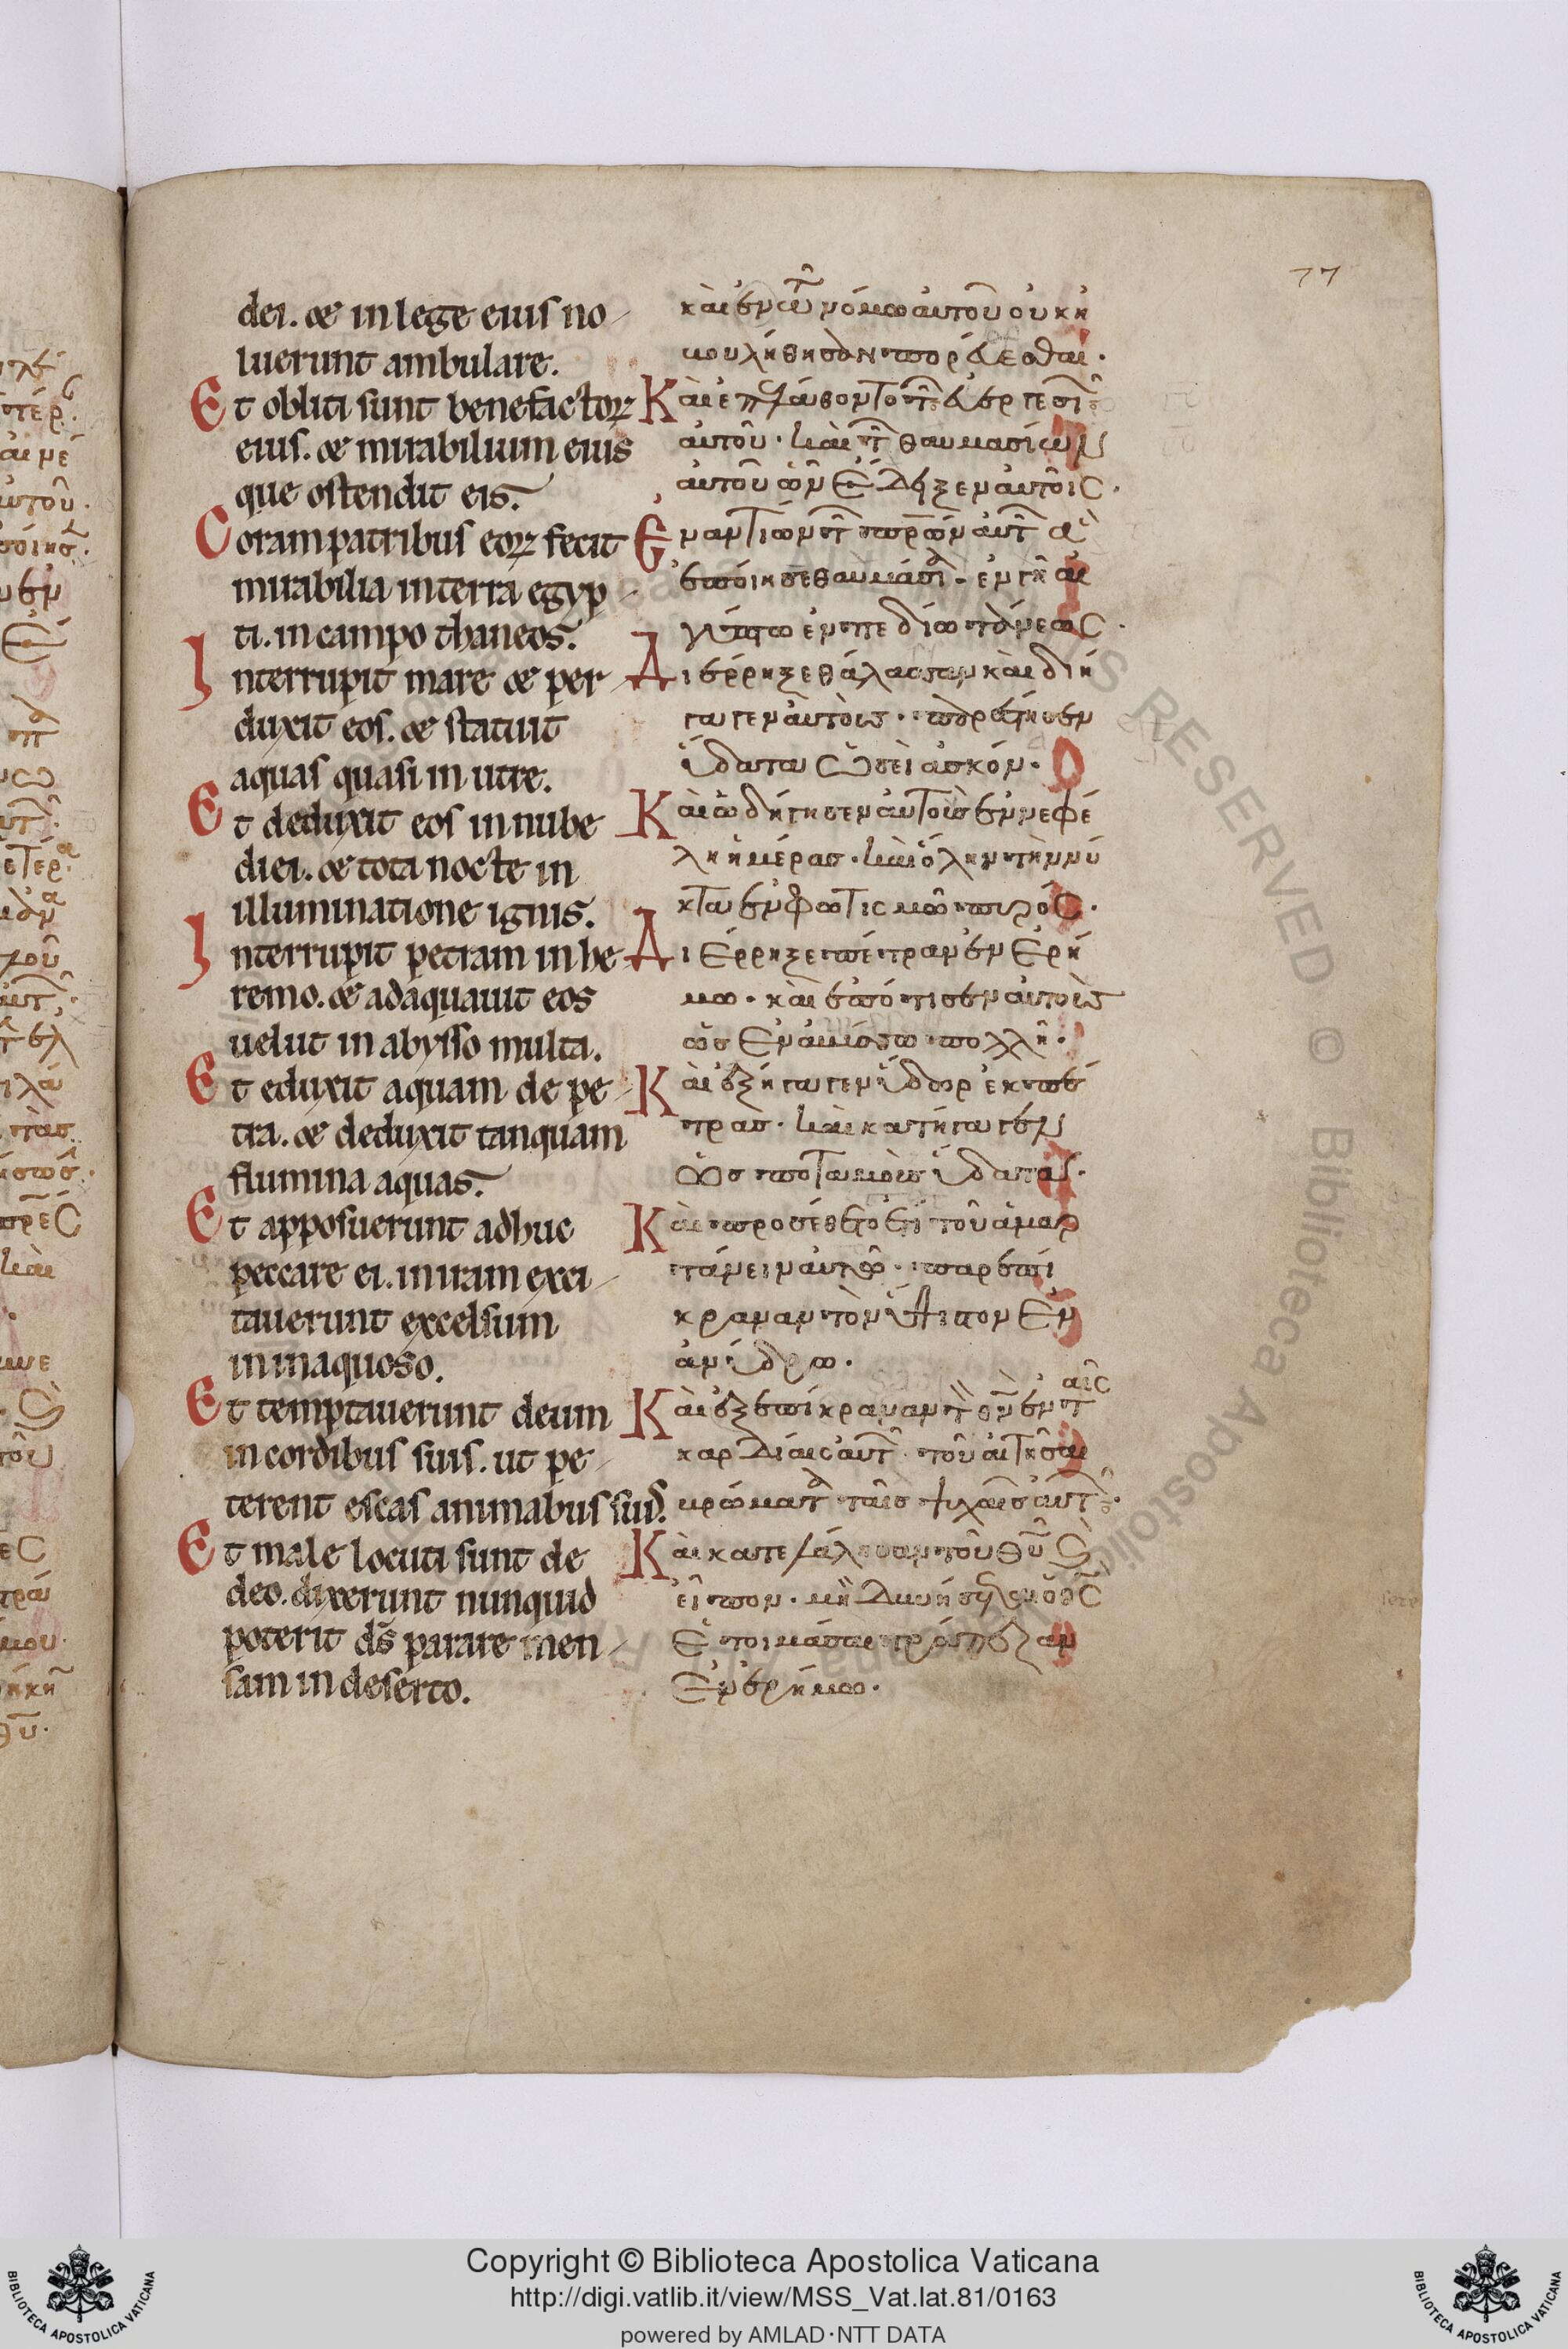 77
dei. & in lege eius no
luerunt ambulare.
Et obliti sunt benefactoꝝ
eius. & mirabilium eius
que ostendit eis.
Coram patribus eoꝝ fecit
mirabilia in terra egyp
ti. in campo thaneos.
Interrupit mare & per
duxit eos. & statuit
aquas quasi in utre.
Et deduxit eos in nube
diei. & tota nocte in
illuminatione ignis.
Interrupit petram in he
remo. & adaquauit eos
uelut in abysso multa.
Et eduxit aquam de pe
tra. & deduxit tanquam
flumina aquas.
Et apposuerunt adhuc
peccare ei. in iram exci
tauerunt excelsum
in inaquoso.
Et temptauerunt deum
in cordibus suis. ut pe
terent escas animabus suis.
Et male locuti sunt de
deo. dixerunt nunquid
poterit ds̄ parare men
sam in deserto.
καὶ ἐν τῶ νόμω αὐτοῦ οὐκ ἠ
βουλήθησαν πορεύεσθαι.
Καὶ ἐπελάθοντο τῶν εὐεργεσιῶν
αὐτοῦ. καὶ τῶν θαυμασίων
αὐτοῦ ὧν ἔδειξεν αὐτοῖς.
Ἐναντίον τῶν πρων αὐτῶν ἃ
ἐποίησε θαυμάσια. ἐν γῆ αἰ
γύπτω ἐν πεδίω τάνεως.
Διέρρηξε θάλασσαν καὶ διή
γαγεν αὐτούς. παρέστησεν
ὕδατα ὡσεὶ ἀσκόν.
Καὶ ὡδήγησεν αὐτοὺς ἐν νεφέ
λη ἡμέρας. καὶ ὅλην τὴν νύ
κτα ἐν φωτισμῶ πυρός.
Διέρρηξε πέτραν ἐν ἐρή
μω. καὶ ἐπότισεν αὐτοὺς
ὡς ἐν ἀβύσσω πολλῆ.
Καὶ ἐξήγαγεν ὕδωρ ἐκ πέ
τρας. καὶ κατήγαγεν
ὡς ποταμοὺς ὕδατα.
Καὶ προσέθεντο ἔτι τοῦ ἁμαρ
τάνειν αὐτῶ. παρεπί
κραναν τὸν ὕψιστον ἐν
ἀνύδρω.
Καὶ ἐξεπίκραναν τὸν θν ἐν ταῖς
καρδίαις αὐτῶν. τοῦ αἰτῆσαι
βρώματα ταῖς ψυχαῖς αὐτῶν.
Καὶ κατελάλησαν τοῦ θυ καὶ
εἶπον. μὴ δυνήσεται ὁ θς
ἑτοιμάσαι τράπεζαν
ἐν ἐρήμω.
RIGHTS RESERVED © Biblioteca Apostolica
Copyright © Biblioteca Apostolica Vaticana
http://digi.vatlib.it/view/MSS_Vat.lat.81/0163
powered by AMLAD·NTT DATA
BIBLIOTECA APOSTOLICA VATICANA
BIBLIOTECA APOSTOLICA VATICANA